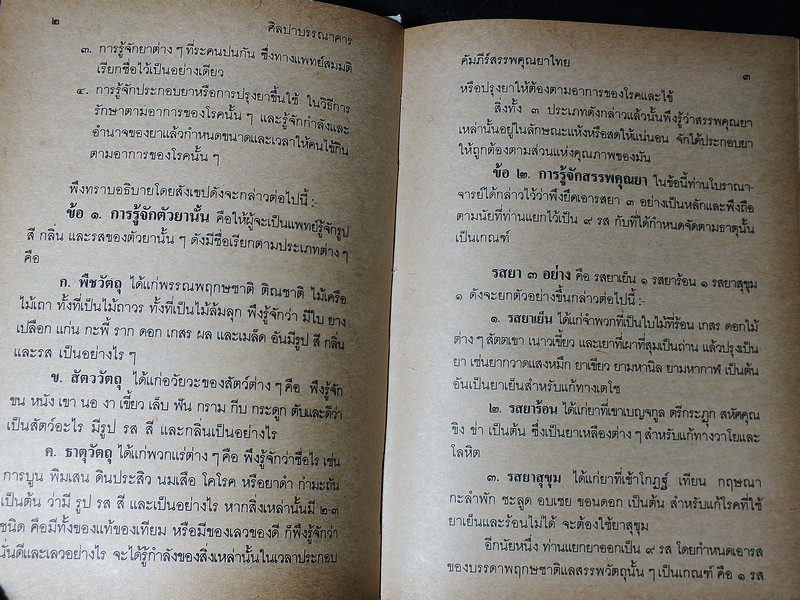 ๒
ศิลปาบรรณาคาร
๓. การรู้จักยาต่าง ๆ ที่ระคนปนกัน ซึ่งทางแพทย์สมมติ
เรียกชื่อไว้เป็นอย่างเดียว
๔. การรู้จักประกอบยาหรือการปรุงยาขึ้นใช้ ในวิธีการ
รักษาตามอาการของโรคนั้น ๆ และรู้จักกำลังและ
อำนาจของยาแล้วกำหนดขนาดและเวลาให้คนไข้กิน
ตามอาการของโรคนั้น ๆ
พึงทราบอธิบายโดยสังเขปดังจะกล่าวต่อไปนี้ :-
ข้อ ๑. การรู้จักตัวยานั้น คือให้ผู้จะเป็นแพทย์รู้จักรูป
สี กลิ่น และรสของตัวยานั้น ๆ ดังมีชื่อเรียกตามประเภทต่าง ๆ
คือ
ก. พืชวัตถุ ได้แก่พรรณพฤกษชาติ ติณชาติ ไม้เครือ
ไม้เถา ทั้งที่เป็นไม้ถาวร ทั้งที่เป็นไม้ล้มลุก พึงรู้จักว่า มีใบ ยาง
เปลือก แก่น กะพี้ ราก ดอก เกสร ผล และเมล็ด อันมีรูป สี กลิ่น
และรส เป็นอย่างไร ๆ
ข. สัตววัตถุ ได้แก่อวัยวะของสัตว์ต่าง ๆ คือ พึงรู้จัก
ขน หนัง เขา นอ งา เขี้ยว เล็บ ฟัน กราม กีบ กระดูก ตับและดีว่า
เป็นสัตว์อะไร มีรูป รส สี และกลิ่นเป็นอย่างไร
ค. ธาตุวัตถุ ได้แก่พวกแร่ต่าง ๆ คือ พึงรู้จักว่าชื่อไร เช่น
การบูน พิมเสน ดินประสิว นมเสือ โคโรค หรือยาดำ กำมะถัน
เป็นต้น ว่ามี รูป รส สี และเป็นอย่างไร หากสิ่งเหล่านั้นมี ๒-๓
ชนิด คือมีทั้งของแท้ของเทียม หรือมีของเลวของดี ก็พึงรู้จักว่า
นั่นดีและเลวอย่างไร จะได้รู้กำลังของสิ่งเหล่านั้นในเวลาประกอบ
คัมภีร์สรรพคุณยาไทย
๓
หรือปรุงยาให้ต้องตามอาการของโรคและไข้
สิ่งทั้ง ๓ ประเภทดังกล่าวแล้วนั้นพึงรู้ว่าสรรพคุณยา
เหล่านั้นอยู่ในลักษณะแห้งหรือสดให้แน่นอน จักได้ประกอบยา
ให้ถูกต้องตามส่วนแห่งคุณภาพของมัน
ข้อ ๒. การรู้จักสรรพคุณยา ในข้อนี้ท่านโบราณา-
จารย์ได้กล่าวไว้ว่าพึงยึดเอารสยา ๓ อย่างเป็นหลักและพึงถือ
ตามนัยที่ท่านแยกไว้เป็น ๙ รส กับที่ได้กำหนดจัดตามธาตุนั้น
เป็นเกณฑ์
รสยา ๓ อย่าง คือ รสยาเย็น ๑ รสยาร้อน ๑ รสยาสุขุม
๑ ดังจะยกตัวอย่างขึ้นกล่าวต่อไปนี้ :-
๑. รสยาเย็น ได้แก่จำพวกที่เป็นใบไม้ที่ร้อน เกสร ดอกไม้
ต่าง ๆ สัตตเขา เนาวเขี้ยว และเยาที่เผาที่สุมเป็นถ่าน แล้วปรุงเป็น
ยา เช่นยากวาดแสงหมึก ยาเขียว ยามหานิล ยามหากาฬ เป็นต้น
อันเป็นยาเย็นสำหรับแก้ทางเตโช
๒. รสยาร้อน ได้แก่ยาที่เขาเบญจกูล ตรีกระฎุก สหัศคุณ
ขิง ข่า เป็นต้น ซึ่งเป็นยาเหลืองต่าง ๆ สำหรับแก้ทางวาโยและ
โลหิต
๓. รสยาสุขุม ได้แก่ยาที่เข้าโกฏฐ์ เทียน กฤษณา
กะลำพัก ชะลูด อบเชย ขอนดอก เป็นต้น สำหรับแก้โรคที่ใช้
ยาเย็นและร้อนไม่ได้ จะต้องใช้ยาสุขุม
อีกนัยหนึ่ง ท่านแยกยาออกเป็น ๙ รส โดยกำหนดเอารส
ของบรรดาพฤกษชาติแลสรรพวัตถุนั้น ๆ เป็นเกณฑ์ คือ ๑ รส